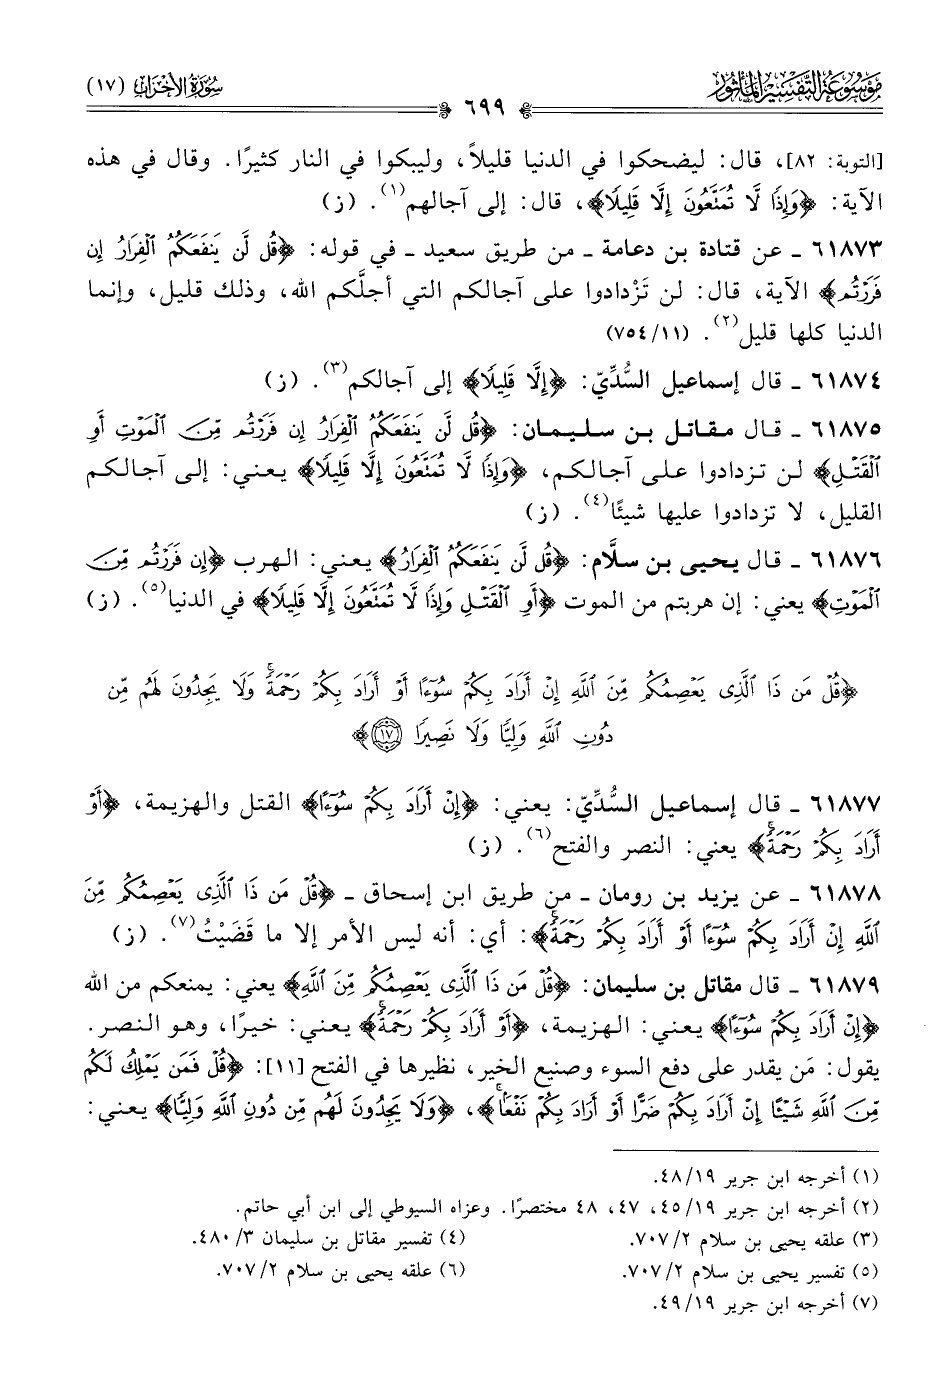 موسوعة التفسير المأثور
سورة الأحزاب (١٧)
٦٩٩
[التوبة: ٨٢]، قال: ليضحكوا في الدنيا قليلاً، وليبكوا في النار كثيرًا. وقال في هذه
الآية: ﴿وَإِذًا لَّا تُمَتَّعُونَ إِلَّا قَلِيلًا﴾، قال: إلى آجالهم(١). (ز)
٦١٨٧٣ ـ عن قتادة بن دعامة ـ من طريق سعيد ـ في قوله: ﴿قُل لَّن يَنفَعَكُمُ ٱلْفِرَارُ إِن
فَرَرْتُم﴾ الآية، قال: لن تَزْدادوا على آجالكم التي أجلَّكم الله، وذلك قليل، وإنما
الدنيا كلها قليل(٢). (٧٥٤/١١)
٦١٨٧٤ ـ قال إسماعيل السُّدِّيّ: ﴿إِلَّا قَلِيلًا﴾ إلى آجالكم(٣). (ز)
٦١٨٧٥ ـ قال مقاتل بن سليمان: ﴿قُل لَّن يَنفَعَكُمُ ٱلْفِرَارُ إِن فَرَرْتُم مِّنَ ٱلْمَوْتِ أَوِ
ٱلْقَتْلِ﴾ لن تزدادوا على آجالكم، ﴿وَإِذًا لَّا تُمَتَّعُونَ إِلَّا قَلِيلًا﴾ يعني: إلى آجالكم
القليل، لا تزدادوا عليها شيئًا(٤). (ز)
٦١٨٧٦ ـ قال يحيى بن سلَّام: ﴿قُل لَّن يَنفَعَكُمُ ٱلْفِرَارُ﴾ يعني: الهرب ﴿إِن فَرَرْتُم مِّنَ
ٱلْمَوْتِ﴾ يعني: إن هربتم من الموت ﴿أَوِ ٱلْقَتْلِ وَإِذًا لَّا تُمَتَّعُونَ إِلَّا قَلِيلًا﴾ في الدنيا(٥). (ز)
﴿قُلْ مَن ذَا ٱلَّذِى يَعْصِمُكُم مِّنَ ٱللَّهِ إِنْ أَرَادَ بِكُمْ سُوٓءًا أَوْ أَرَادَ بِكُمْ رَحْمَةً ۚ وَلَا يَجِدُونَ لَهُم مِّن
دُونِ ٱللَّهِ وَلِيًّا وَلَا نَصِيرًا ١٧﴾
٦١٨٧٧ ـ قال إسماعيل السُّدِّيّ: يعني: ﴿إِنْ أَرَادَ بِكُمْ سُوٓءًا﴾ القتل والهزيمة، ﴿أَوْ
أَرَادَ بِكُمْ رَحْمَةً ۚ﴾ يعني: النصر والفتح(٦). (ز)
٦١٨٧٨ ـ عن يزيد بن رومان ـ من طريق ابن إسحاق ـ ﴿قُلْ مَن ذَا ٱلَّذِى يَعْصِمُكُم مِّنَ
ٱللَّهِ إِنْ أَرَادَ بِكُمْ سُوٓءًا أَوْ أَرَادَ بِكُمْ رَحْمَةً ۚ﴾: أي: أنه ليس الأمر إلا ما قَضَيْتُ(٧). (ز)
٦١٨٧٩ ـ قال مقاتل بن سليمان: ﴿قُلْ مَن ذَا ٱلَّذِى يَعْصِمُكُم مِّنَ ٱللَّهِ﴾ يعني: يمنعكم من الله
﴿إِنْ أَرَادَ بِكُمْ سُوٓءًا﴾ يعني: الهزيمة، ﴿أَوْ أَرَادَ بِكُمْ رَحْمَةً ۚ﴾ يعني: خيرًا، وهو النصر.
يقول: مَن يقدر على دفع السوء وصنيع الخير، نظيرها في الفتح [١١]: ﴿قُلْ فَمَن يَمْلِكُ لَكُم
مِّنَ ٱللَّهِ شَيْـًٔا إِنْ أَرَادَ بِكُمْ ضَرًّا أَوْ أَرَادَ بِكُمْ نَفْعًا ۚ﴾، ﴿وَلَا يَجِدُونَ لَهُم مِّن دُونِ ٱللَّهِ وَلِيًّا﴾ يعني:
(١) أخرجه ابن جرير ٤٨/١٩.
(٢) أخرجه ابن جرير ٤٥/١٩، ٤٧، ٤٨ مختصرًا. وعزاه السيوطي إلى ابن أبي حاتم.
(٣) علقه يحيى بن سلام ٧٠٧/٢. (٤) تفسير مقاتل بن سليمان ٤٨٠/٣.
(٥) تفسير يحيى بن سلام ٧٠٧/٢. (٦) علقه يحيى بن سلام ٧٠٧/٢.
(٧) أخرجه ابن جرير ٤٩/١٩.